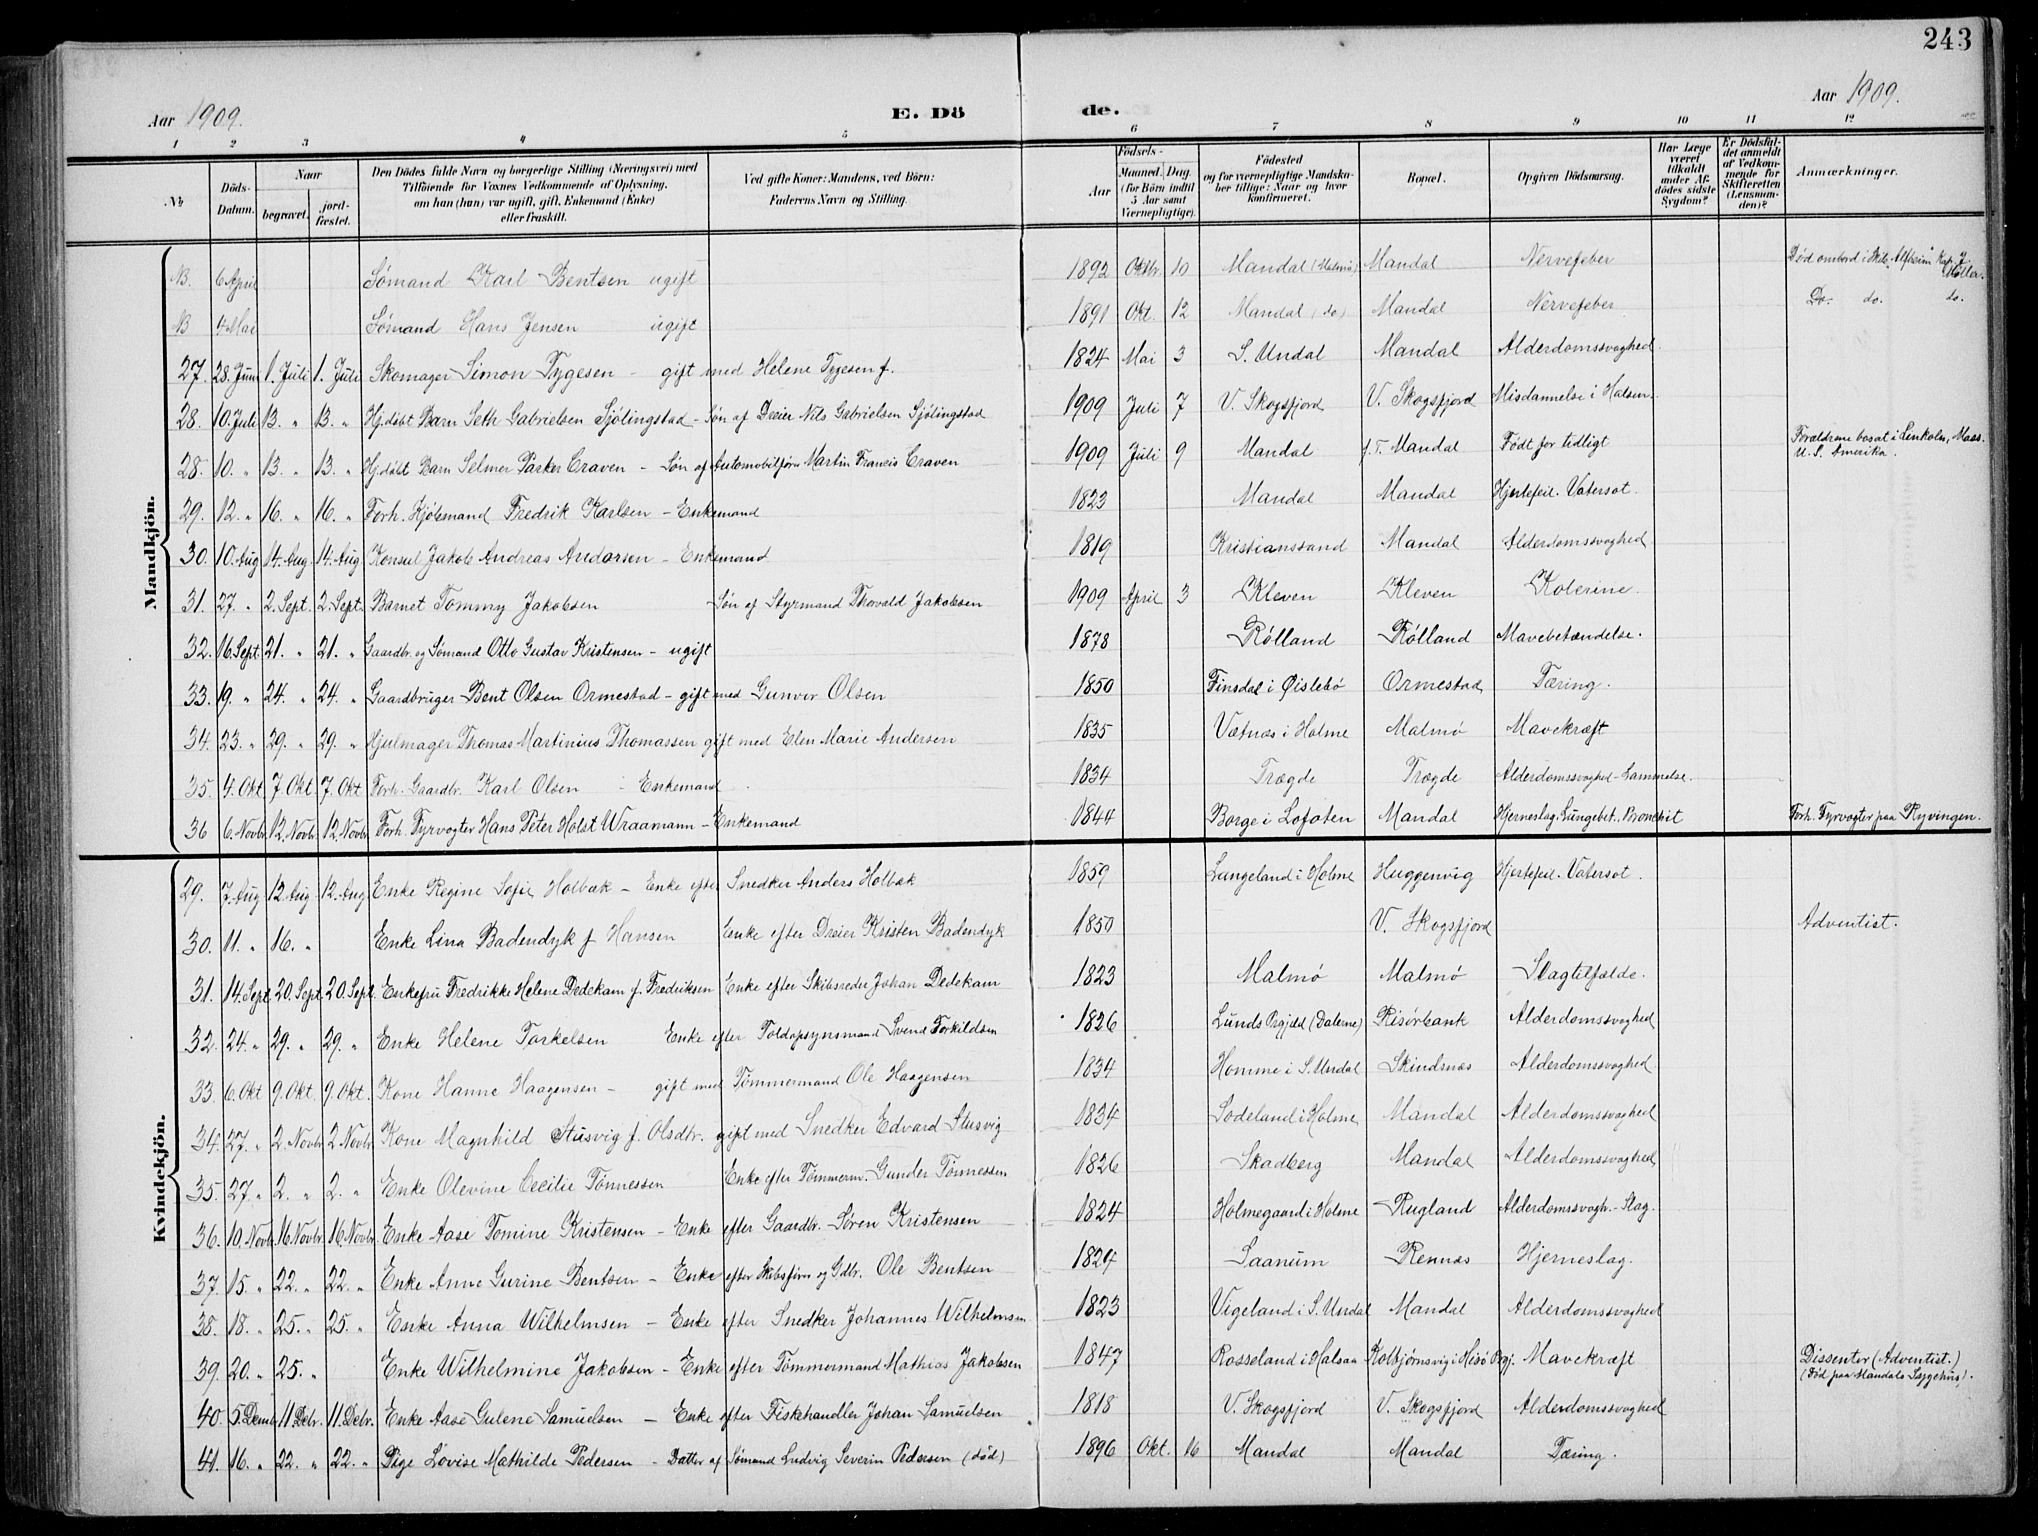 243
Aar 1909.
E. Dö
de.
Aar 1909.
1 2 3 4 5 6 7 8 9 10 11 12
No.
Döds-Datum.
Naar
begravet.
jord-fæstet.
Den Dödes fulde Navn og borgerlige Stilling (Næringsvei) med
Tilföiende for Voxnes Vedkommende af Oplysning,
om han (hun) var ugift, gift, Enkemand (Enke)
eller fraskilt.
Ved gifte Koner: Mandens, ved Börn:
Faderens Navn og Stilling.
Födsels-
Aar
Maaned. Dag.
(for Börn indtil
5 Aar samt
Værnepligtige).
Födested
og for værnepligtige Mandska-
ber tillige: Naar og hvor
konfirmeret.
Bopæl.
Opgiven Dödsaarsag.
Har Læge
været
tilkaldt
under Af-
dödes sidste
Sygdom?
Er Dödsfal-
det anmeldt
af Vedkom-
mende for
Skifteretten
(Lensman-
den)?
Anmærkninger.
Mandkjön.
NB. 6 April Sømand Karl Bentsen ugift 1892 Oktbr. 10 Mandal (Malmö) Mandal Nervefeber Död ombord i Skib. Alfheim Kap. J. Møller.
NB 4 Mai Sømand Hans Jensen ugift 1891 Okt. 12 Mandal (do) Mandal Nervefeber Do. do. do.
27. 28. Juni 1. Juli 1. Juli Skomager Simon Tygesen - gift med Helene Tygesen f. 1824 Mai 3 S. Undal Mandal Alderdomssvaghed.
28. 10. Juli 13. " 13. " Hj.døbt Barn Seth Gabrielsen Sjölingstad - Søn af Dreier Nils Gabrielsen Sjölingstad 1909 Juli 7 V. Skogsfjord V. Skogsfjord Misdannelse i Halsen.
28. 10. " 13. " 13. " Hj.døbt Barn Selmer Parker Craven - Søn af Automobilfører Martin Francis Craven 1909 Juli 9 Mandal f.T. Mandal Födt for tidligt Forældrene bosat i Linkoln, Mass. U. S. Amerika.
29. 12. " 16. " 16. " Forh. Kjöbmand Fredrik Karlsen - Enkemand 1823 Mandal Mandal Hjertefeil. Vatersot.
30. 10. Aug 14. Aug 14. Aug Konsul Jakob Andreas Andorsen - Enkemand 1819 Kristianssand Mandal Alderdomssvaghed
31. 27. " 2. Sept. 2. Sept. Barnet Tommy Jakobsen Søn af Styrmand Thorvald Jakobsen 1909 April 3 Kleven Kleven Kolerine.
32. 16. Sept. 21. " 21. " Gaardbr. og Sømand Otto Gustav Kristensen - ugift 1878 Rølland Rølland Mavebetændelse.
33. 19. " 24. " 24. " Gaardbruger Bent Olsen Ormestad - gift med Gunvor Olsen 1850 Finsdal i Øislebö Ormestad Tæring.
34. 23. " 29. " 29. " Hjulmager Thomas Martinius Thomassen gift med Elen Marie Andersen 1835 Vatnas i Holme Malmö Mavekræft
35. 4. Okt. 7. Okt. 7. Okt Forh. Gaardbr. Karl Olsen - Enkemand 1834 Trægde Trægde Alderdomssvaghed - Lammelse.
36 6. Novbr. 12. Novbr. 12. Novbr. Forh. Fyrvogter Hans Peter Holst Wraamann - Enkemand 1844 Borge i Lofoten Mandal Hjerneslag. Lungebet. Bronchit Forh. Fyrvogter paa Ryvingen.
Kvindekjön.
29. 7. Aug 12. Aug. 12. Aug Enke Regine Sofie Holbæk - Enke efter Snedker Anders Holbæk 1859 Lungeland i Holme Huggenvig Hjertefeil. Vatersot.
30. 11. " 16. " Enke Lina Badendyk f Hansen Enke efter Dreier Kristen Badendyk 1850 V. Skogsfjord Adventist.
31. 14. Sept. 20. Sept. 20. Sept. Enkefru Fredrikke Helene Dedekam f. Fredriksen Enke efter Skibsreder Johan Dedekam 1823 Malmö Malmö Slagtilfælde.
32. 24. " 29. " 29. " Enke Helene Torkelsen Enke efter Toldopsynsmand Svend Torkildsen 1826 Lunds Prgjæld (Dalerne) Risörbank Alderdomssvaghed
33. 6. Okt 9. Okt. 9. Okt. Kone Hanne Haagensen - gift med Tömmermand Ole Haagensen 1834 Homme i S. Undal Skindnæs Alderdomssvaghed.
34. 27. " 2. Novbr. 2. Novbr. Kone Magnhild Stusvig f. Olsdtr. gift med Snedker Edvard Stusvig 1834 Sodeland i Holme Mandal Alderdomssvaghed
35. 27. " 2. " 2. " Enke Olevine Cecilie Tønnessen Enke efter Tömmerm. Gunder Tønnessen 1826 Skadberg Mandal Alderdomssvaghed
36. 10. Novbr. 16. Novbr. 16. Novbr. Enke Aase Tomine Kristensen - Enke efter Gaardbr. Søren Kristensen 1824 Holmegaard i Holme Rugland Alderdomssvagh. - Slag.
37. 15. " 22. " 22. " Enke Anne Gurine Bentsen - Enke efter Skibsfører og Gdbr. Ole Bentsen 1824 Saanum Rennæs Hjerneslag.
38. 18. " 25. " 25. " Enke Anna Wilhelmsen - Enke efter Snedker Johannes Wilhelmsen 1823 Vigeland i S. Undal Mandal Alderdomssvaghed
39. 20. " 25. " Enke Wilhelmine Jakobsen - Enke efter Tömmermand Mathias Jakobsen 1847 Rosseland i Halsaa Kolbjørnsvig i Hisö Prgj. Mavekræft Dissenter (Adventist.) (Död paa Mandals Sygehus).
40. 5. Decbr. 11 Debr. 11. Debr. Enke Aase Gulene Samuelsen - Enke efter Fiskehandler Johan Samuelsen 1818 V. Skogsfjord V. Skogsfjord Alderdomssvaghed
41. 16. " 22. " 22. " Pige Lovise Mathilde Pedersen - Datter af Sømand Ludvig Severin Pedersen (död) 1896 Okt. 16 Mandal Mandal Tæring.